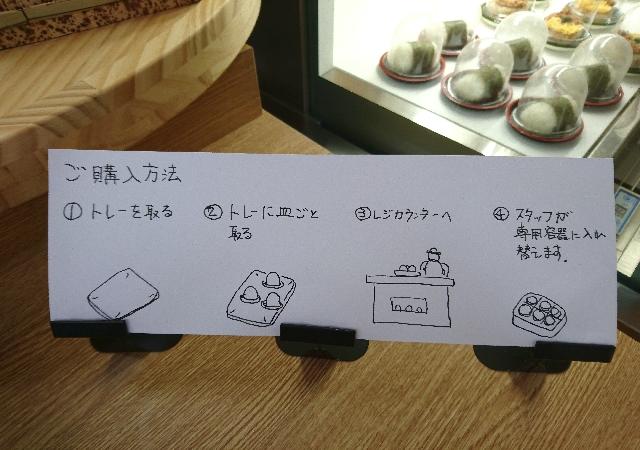 ご購入方法
① トレーを取る
② トレーに皿ごと
取る
③ レジカウンターへ
④ スタッフが
専用容器に入れ
替えます。